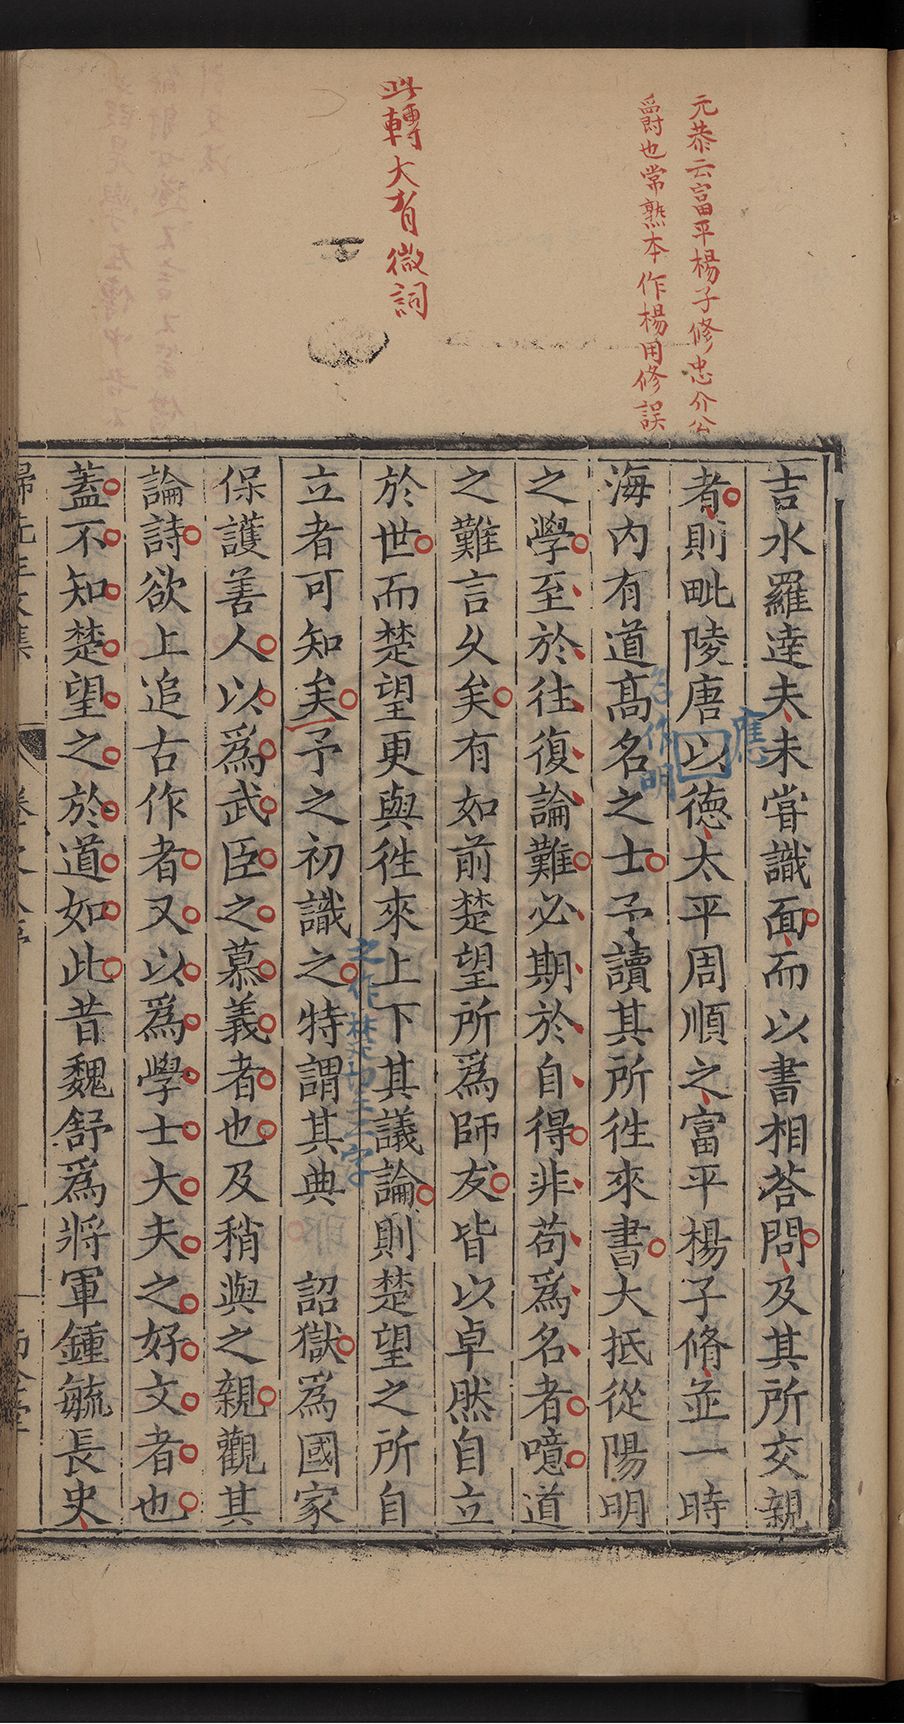 元恭云富平楊子修忠介公
爵也常熟本作楊用修誤
此轉大有微詞
吉水羅達夫未嘗識面而以書相荅問及其所交親
者則毗陵唐以德太平周順之富平楊子脩並一時
應
海内有道高名之士予讀其所徃來書大抵從陽明
名作明
之學至於往復論難必期於自得非苟爲名者噫道
之難言乆矣有如前楚望所爲師友皆以卓然自立
於世而楚望更與徃來上下其議論則楚望之所自
立者可知矣予之初識之特謂其典 詔獄爲國家
之作楚望二字
保護善人以爲武臣之慕義者也及稍與之親觀其
論詩欲上追古作者又以爲學士大夫之好文者也
蓋不知楚望之於道如此昔魏舒爲將軍鍾毓長史